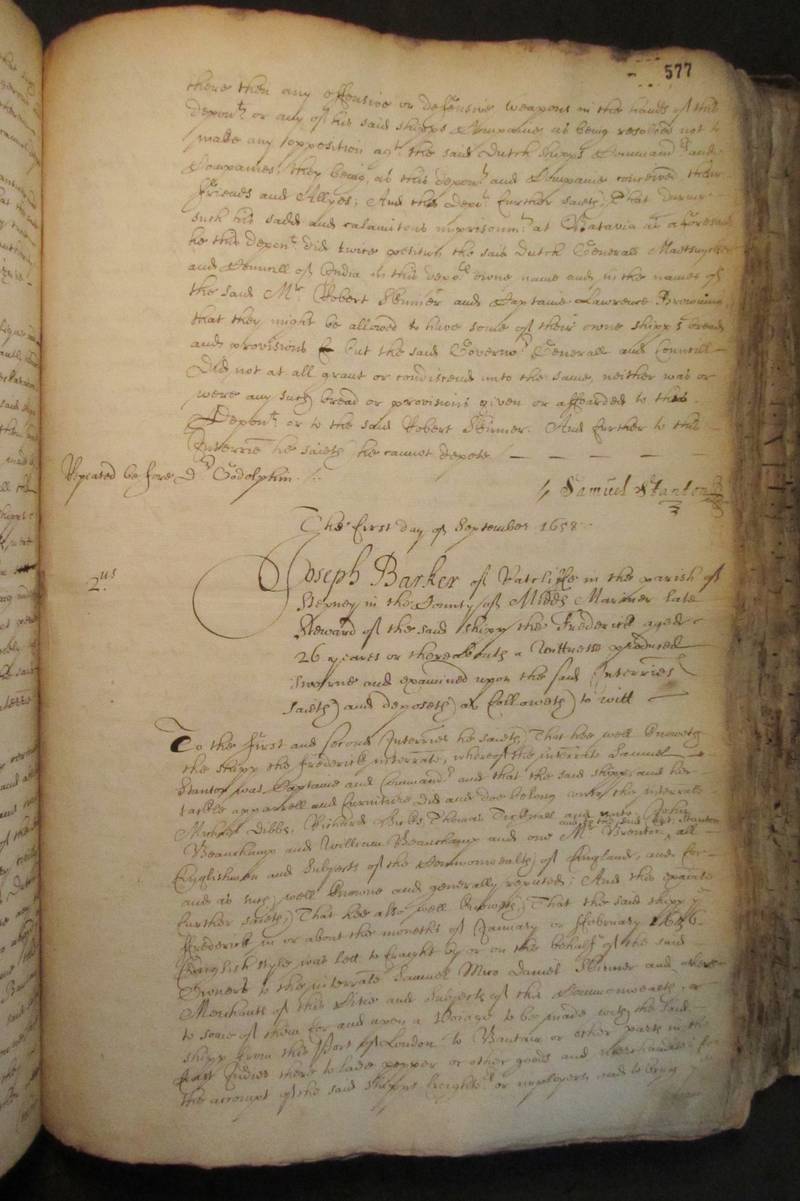 577
there then any offensive or defensive weapons in the hands of this
depont. or any of his said shipps Companie, as being resolved not to
make any opposition agt. the said Dutch shipps Command.rs and
Companies, they being, as this depont. and Companie conceived their
friends and Allyes; And this depot. further saieth That dureing
such his sadd and calamitous imprisonmt. at Batavia as aforesaid
he this depont. did twice petition the said Dutch Generall Maetsuycker
and Councill of India in this depots. owne name and in the names of
the said Mr. Robert Skinner and Captaine Lawrence Browning
that they might be allowed to have some of their owne shipps bread
and provisions but the said Governor. Generall and Councill
Did not at all grant or condiscend unto the same, neither was or
were any such bread or provisions given or afforded to this
Depont. or to the said Robert Skinner. And further to this
Interrie he saieth he cannot depose
Repeated before Dr. Godolphin
Samuel Stanton
The first day of September 1658
2us
Joseph Barker of Ratcliffe in the parish of
Stepney in the County of Middx Mariner late
Steward of the said shipp the Frederick aged
26 yeares or thereabouts a wittness produced
sworne and examined upon the said Interries
saieth and deposeth as followeth to witt
To the first and second Interries he saieth That hee well knoweth
the shipp the Frederick interrate, whereof the interrate Samuel
Stanton was Captaine and Commandr. and that the said shipp and her
tackle apparrell and furniture did and doe belong unto the interrate
Michael Dibbs, Richard Thomas and John
and the said Capt. Stanton
Beauchamp and William Beauchamp and one Mr. all
Englishmen and Subjects of the Commonwealth of England, and for
and as such well knowne and generally reputed; And this
further saieth That hee also well knoweth That the said shipp ye
Frederick in or about the moneths of January or February 1656
English style was lett to fraight by or on the behalf of the said
Owners to the interrate Samuel Daniel Skinner and
Merchants of this Citie and Subjects of this Commonwealth, or
to some of them for and upon a Voiage to be made with the said
shipp from this Port of London to Bantam or other parts in the
East Indies there to lade pepper or other goods and merchandizes for
the accompt of the said shipps freighters. or imployers and to bring